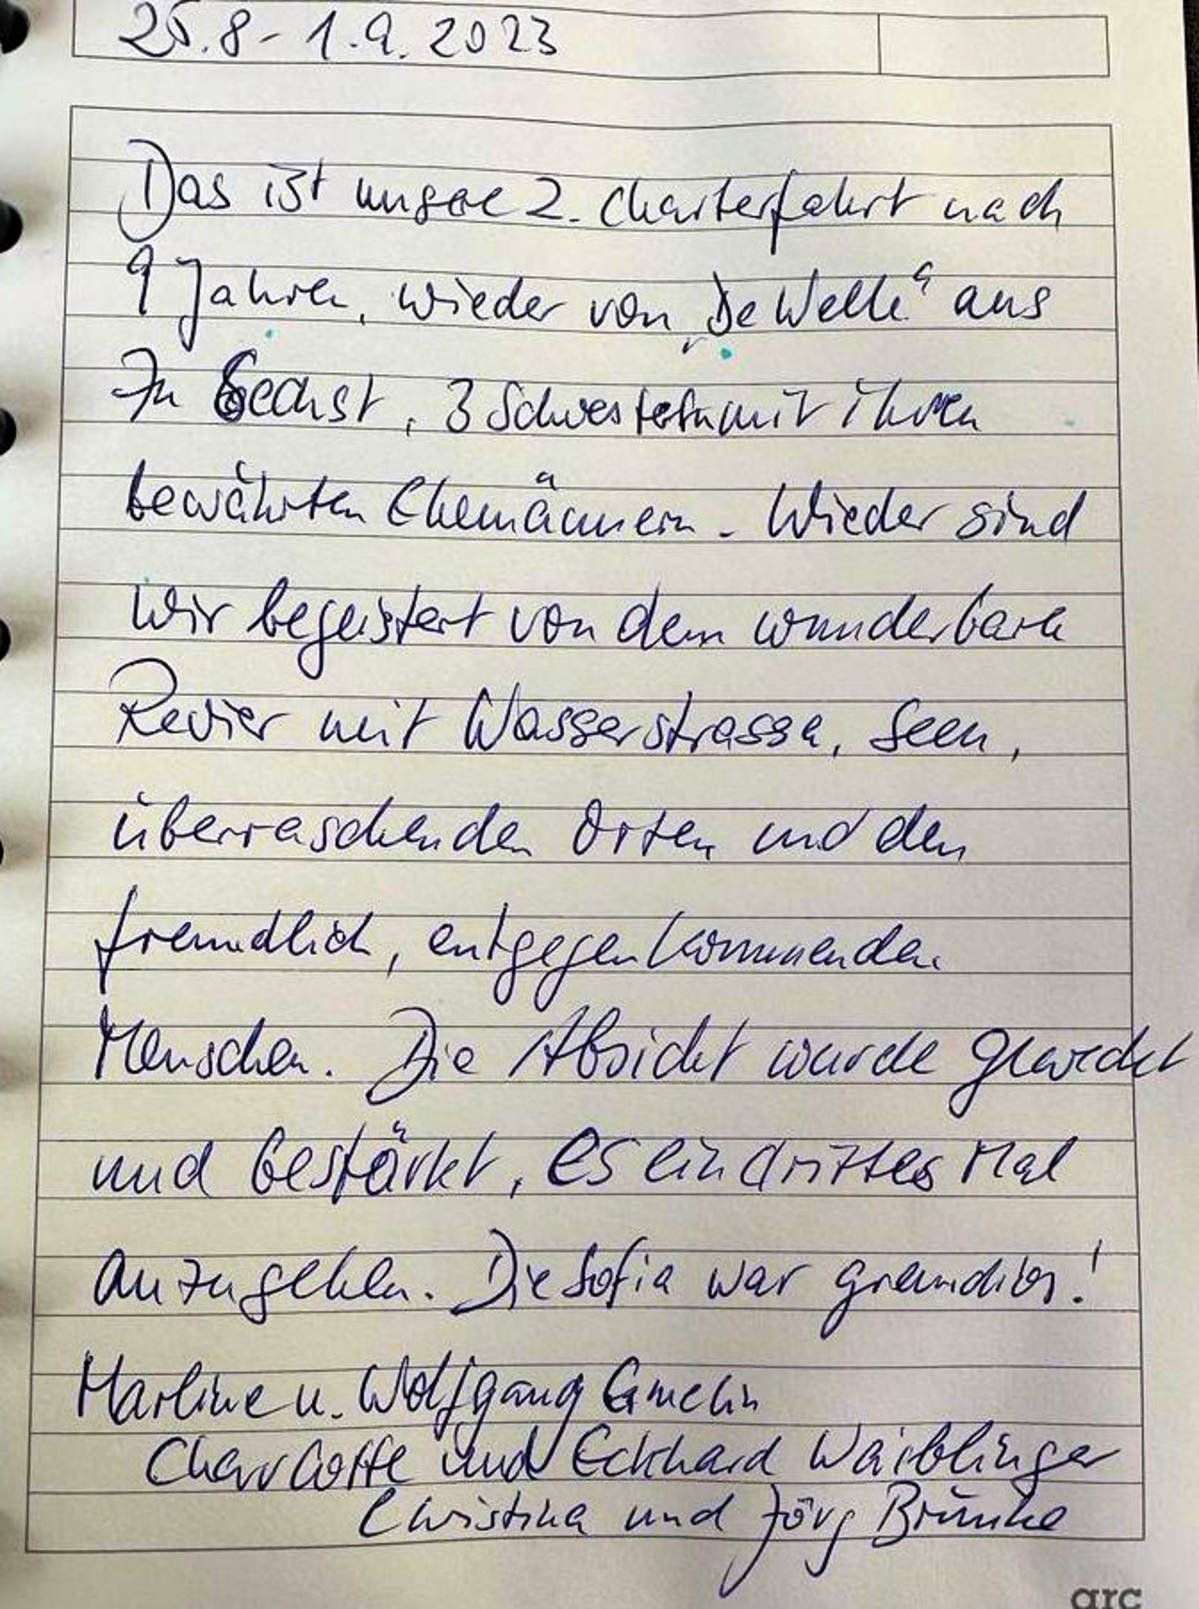 25.8 - 1.9. 2023
Das ist unsere 2. Charterfahrt nach
9 Jahren, wieder von „De Welle“ aus
Zu Sechst, 3 Schwestern mit ihren
bewährten Ehemännern. Wieder sind
wir begeistert von dem wunderbaren
Revier mit Wasserstrassen, Seen,
überraschenden Orten und den
freundlich, entgegenkommenden
Menschen. Die Absicht wurde geweckt
und bestärkt, es ein drittes Mal
anzugehen. Die Sofia war grandios!
u. Wolfgang Gmelin
Charlotte und Eckhard Waiblinger
Christina und Jörg
arc